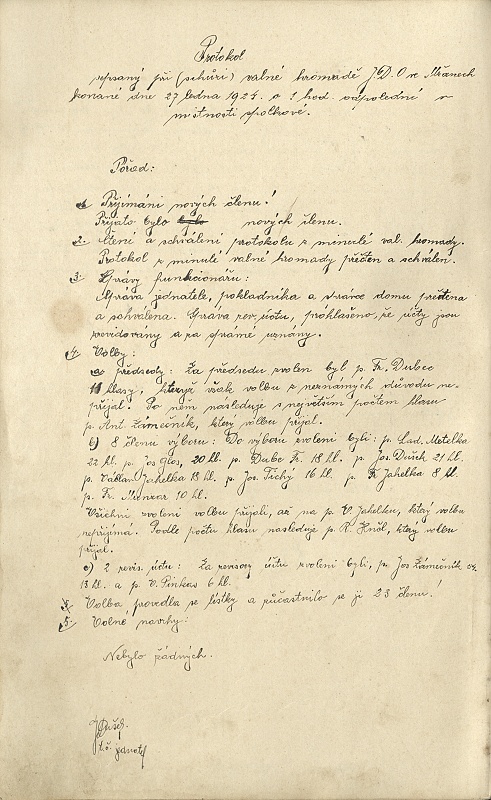 Protokol
sepsaný při (schůzi) valné hromadě J.D.O ve Mžanech
konané dne 27 ledna 1924. o 1 hod. odpolední v
místnosti spolkové.
Pořad:
1. Přijímání nových členu!
Přijato bylo bylo nových členu.
2. Čtení a schválení protokolu z minulé val. hromady.
Protokol z minulé valné hromady přečten a schválen.
3. Zprávy funkcionářu:
Zpráva jednatele, pokladníka a správce domu přečtena
a schválena. Zpráva rev. účtu, prohlašeno, že účty jsou
revidovány a za správné uznány.
4. Volby:
a) předsedy: Za předsedu zvolen byl p. Fr. Dubec
11 hlasy, kterýž však volbu z neznámých důvodu ne-
přijal. Po něm následuje s největším počtem hlasu
p. Ant. Zámečník, který volbu přijal.
b) 8 členu výboru: Do výboru zvoleni byli: p. Lad. Motelka
22 hl. p. Jos Glos, 20 hl. p. Dubc Fr. 18 hl. p. Jos. Dušek 21 hl.
p. Václav Jahelka 18 hl. p. Jos. Tichý 16 hl. p. Fr Jahelka 8 hl.
p. Fr. 10 hl.
Všichni zvolení volbu přijali, až na p. V. Jahelku, který volbu
nepřijímá. Podle počtu hlasu nasleduje p. R. Knól, který volbu
přijal.
c) 2 revis. účtu: Za revisory účtu zvoleni byli, p. Jos Zámečník
13 hl. a p. V. Pinkas 6 hl.
Volba provedla se lístky a zůčastnilo se jí 23 členu!
5. Volné návrhy:
Nebylo žádných.
J Dušek.
t. č. jednatel